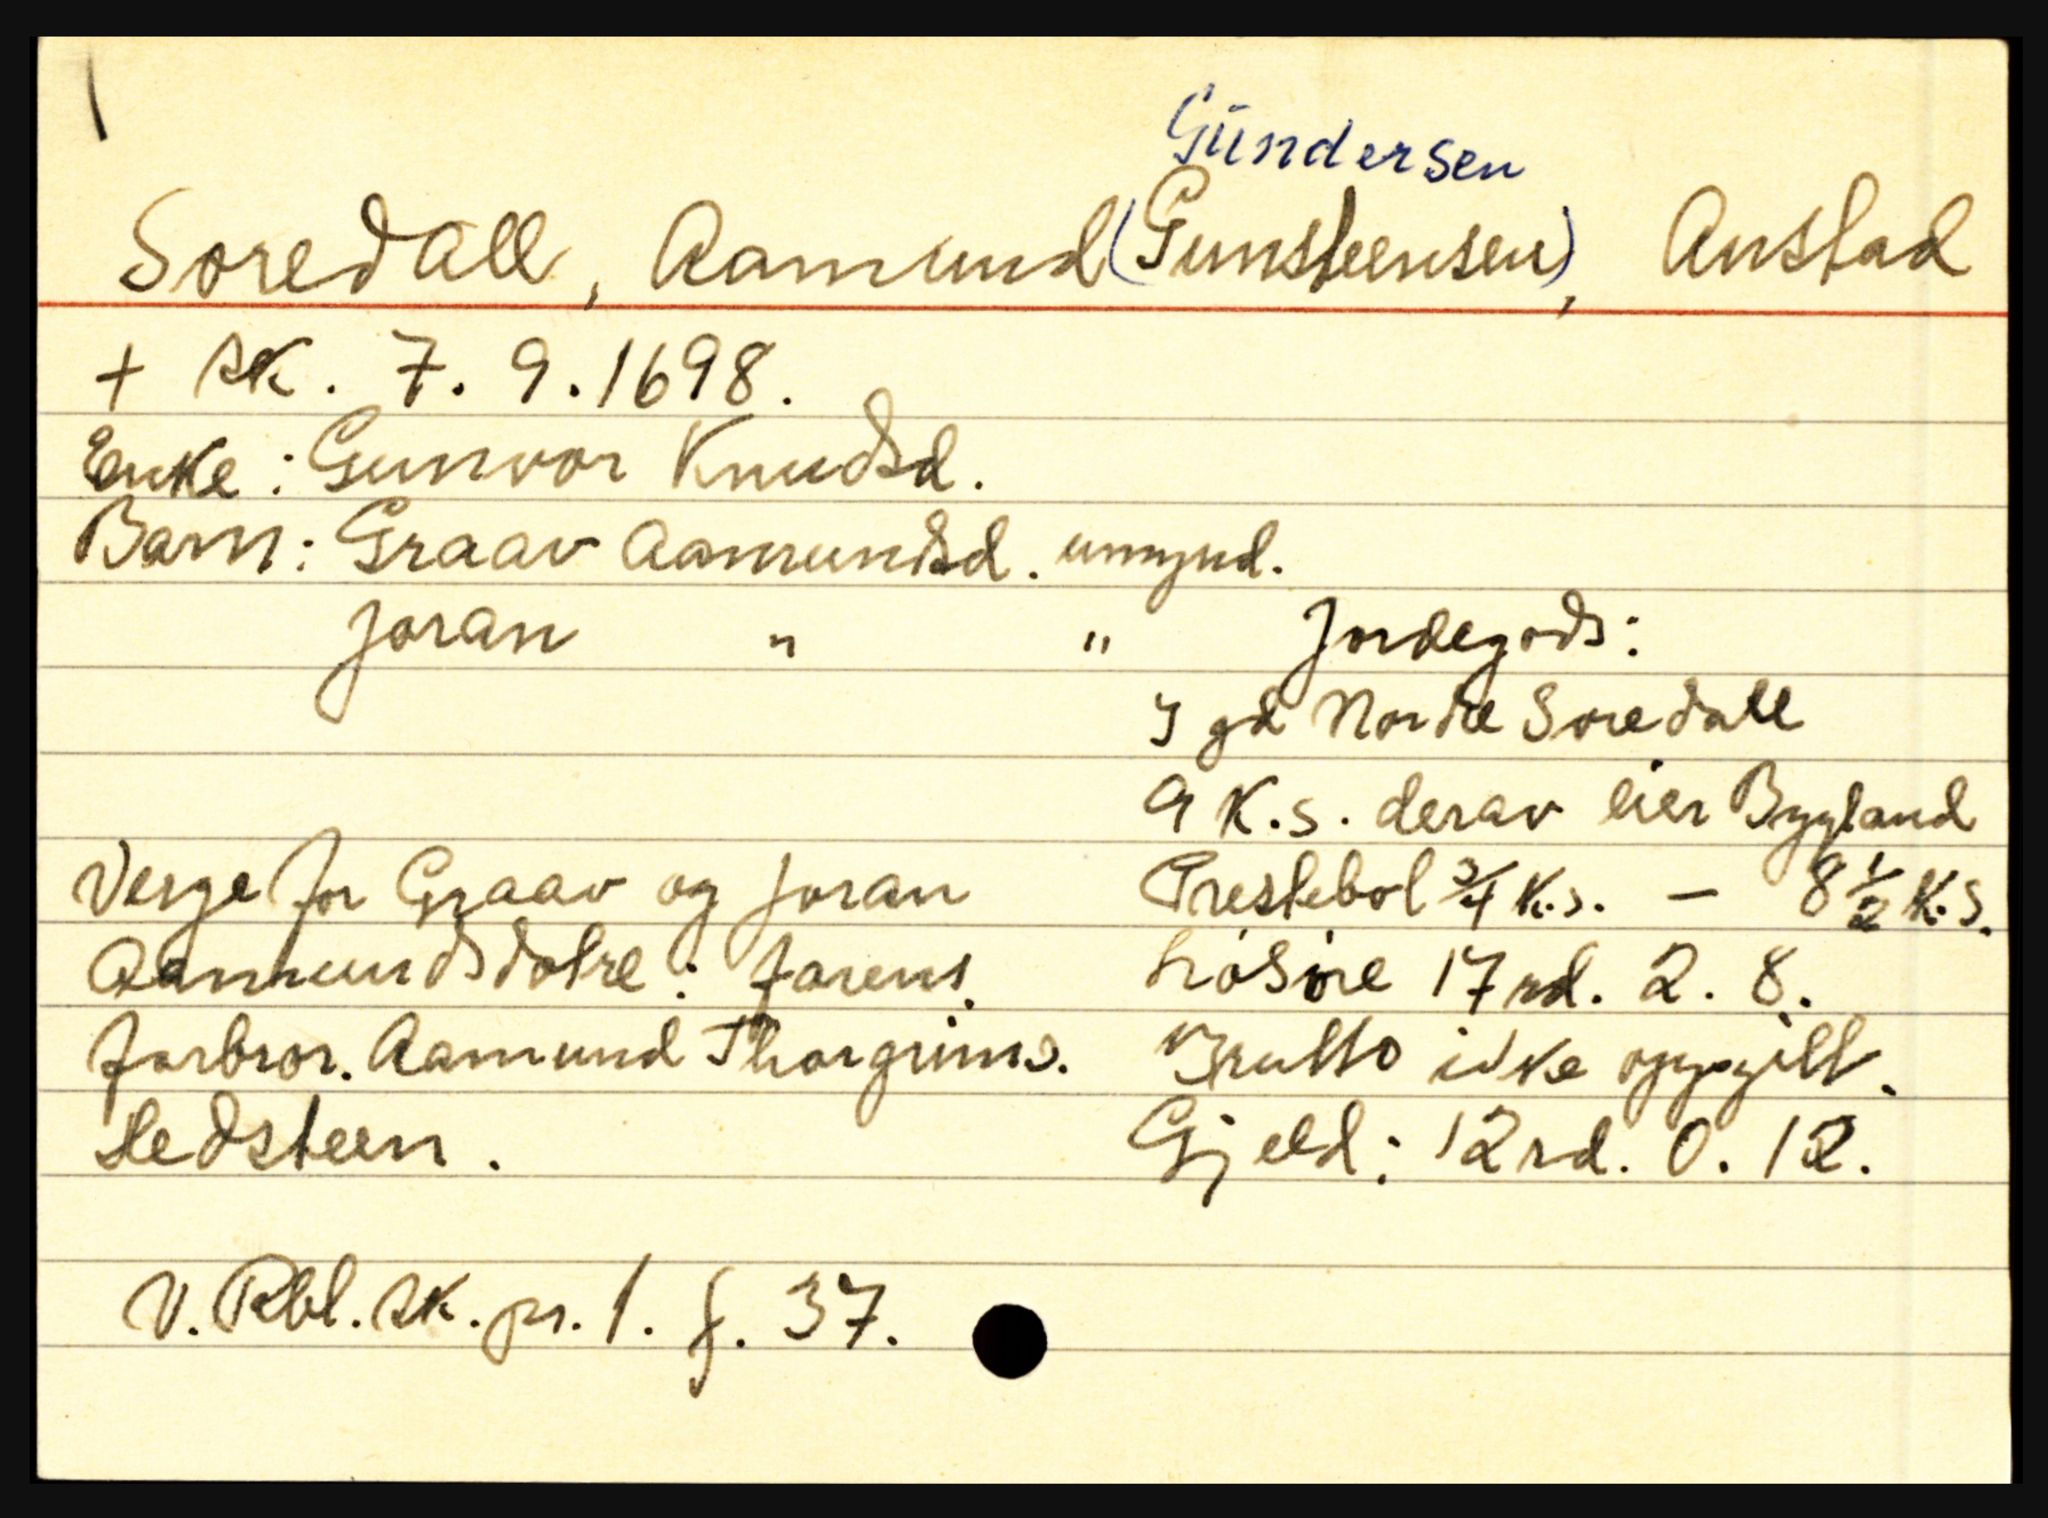 Gündersen
Soredall, Aamund (Gunsteensen), Austad
+ sk. 7. 9. 1698.
Enke: Gunvor Knudsd.
Barn: Graav Aamundsd. umynd.
Joran " "
Jordegods:
I gd Nordre Soredall
9 K.s. derav eier Bygland
Prestebol 3/4 K.s. – 8 1/2 K.s.
Løsøre 17 rd. 2. 8.
Brutto ikke oppgitt.
Gjeld: 12 rd. 0. 12.
Verge for Graav og Joran
Aamundsdotre: farens
farbror. Aamund Thorgrims.
Hedsteen.
V. Rbl. sk. pr. 1. f. 37.